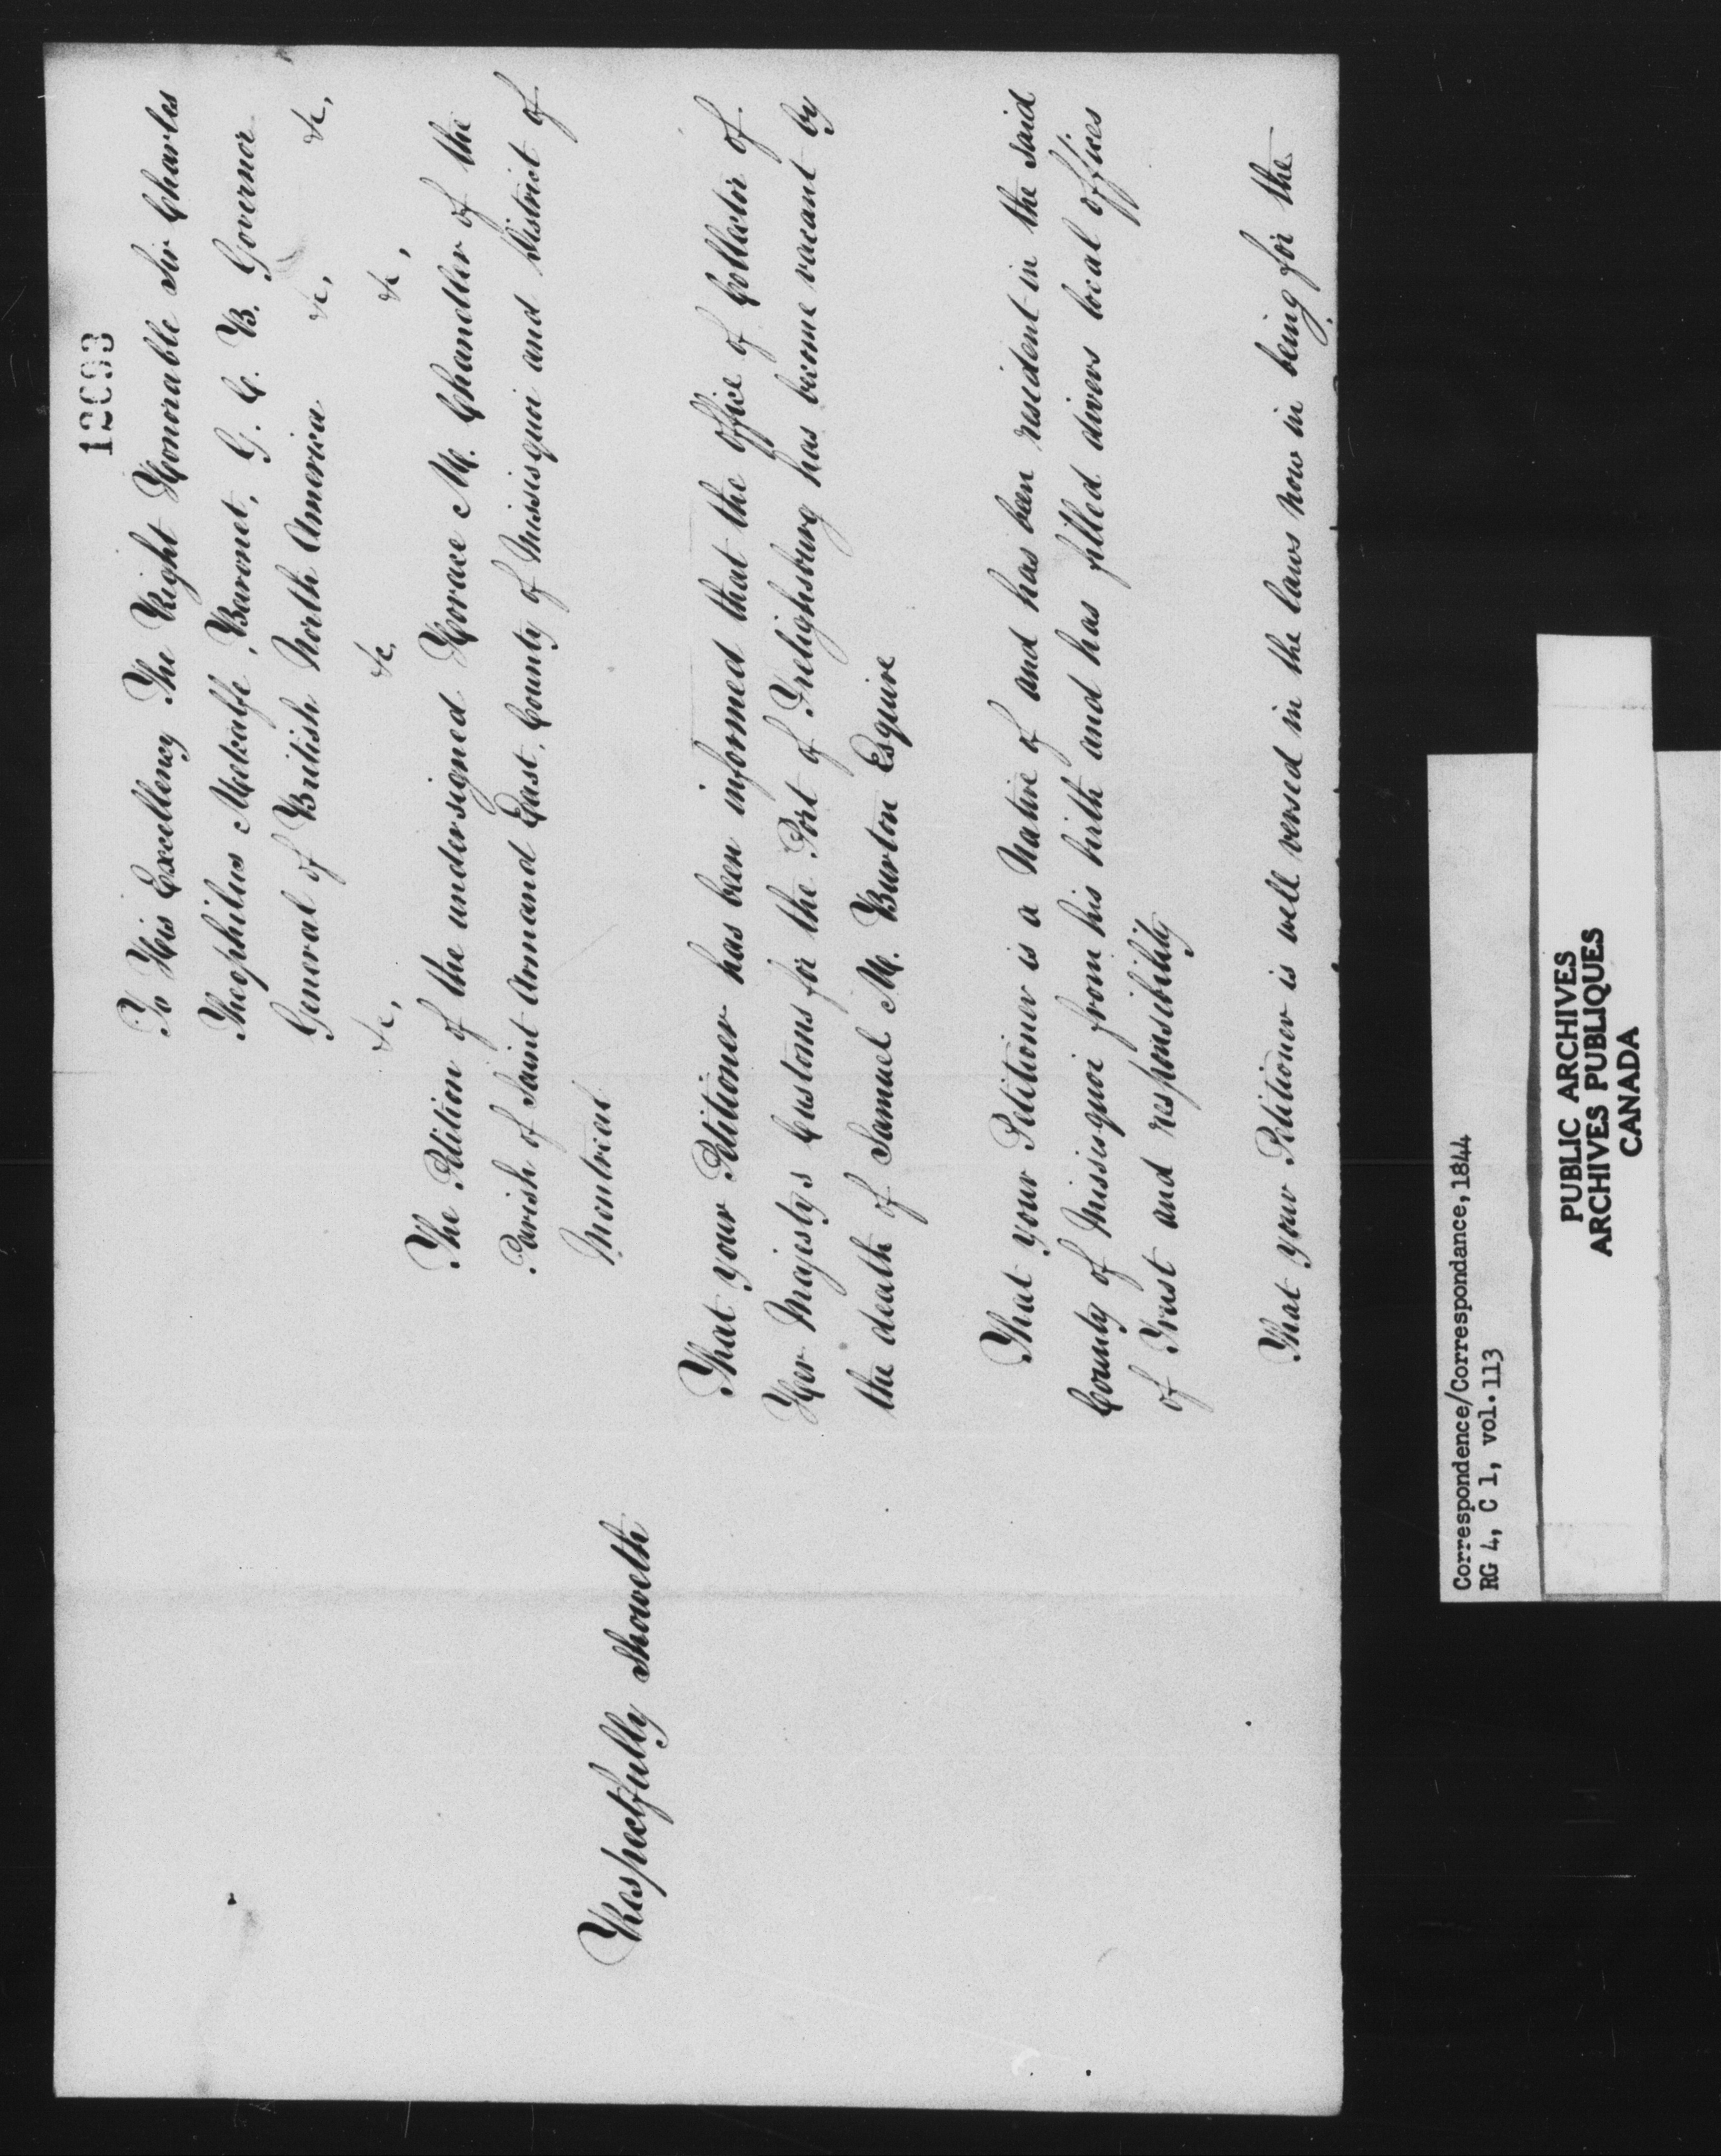 12093
To His Excellency The Right Honorable Sir Charles
Theophilus Metcalfe, Baronet, G. C. B. Governor
General of British North America &c, &c,
&c, &c, &c,
The Petition of the undersigned Horace M. Chandler of the
Parish of Saint Armand East, County of Missisquoi and District of
Montreal
Respectfully Showeth
That your Petitioner has been informed that the office of Collector of
Her Majestys Customs for the Port of Frelighsburg has become vacant by
the death of Samuel M. Burton Esquire
That your Petitioner is a Native of and has been resident in the said
County of Missisquoi from his birth and has filled divers local offices
of Trust and responsibility
That your Petitioner is well versed in the laws now in being for the
Correspondence/Correspondance,1844
RG 4, C 1, vol.113
PUBLIC ARCHIVES
ARCHIVES PUBLIQUES
CANADA